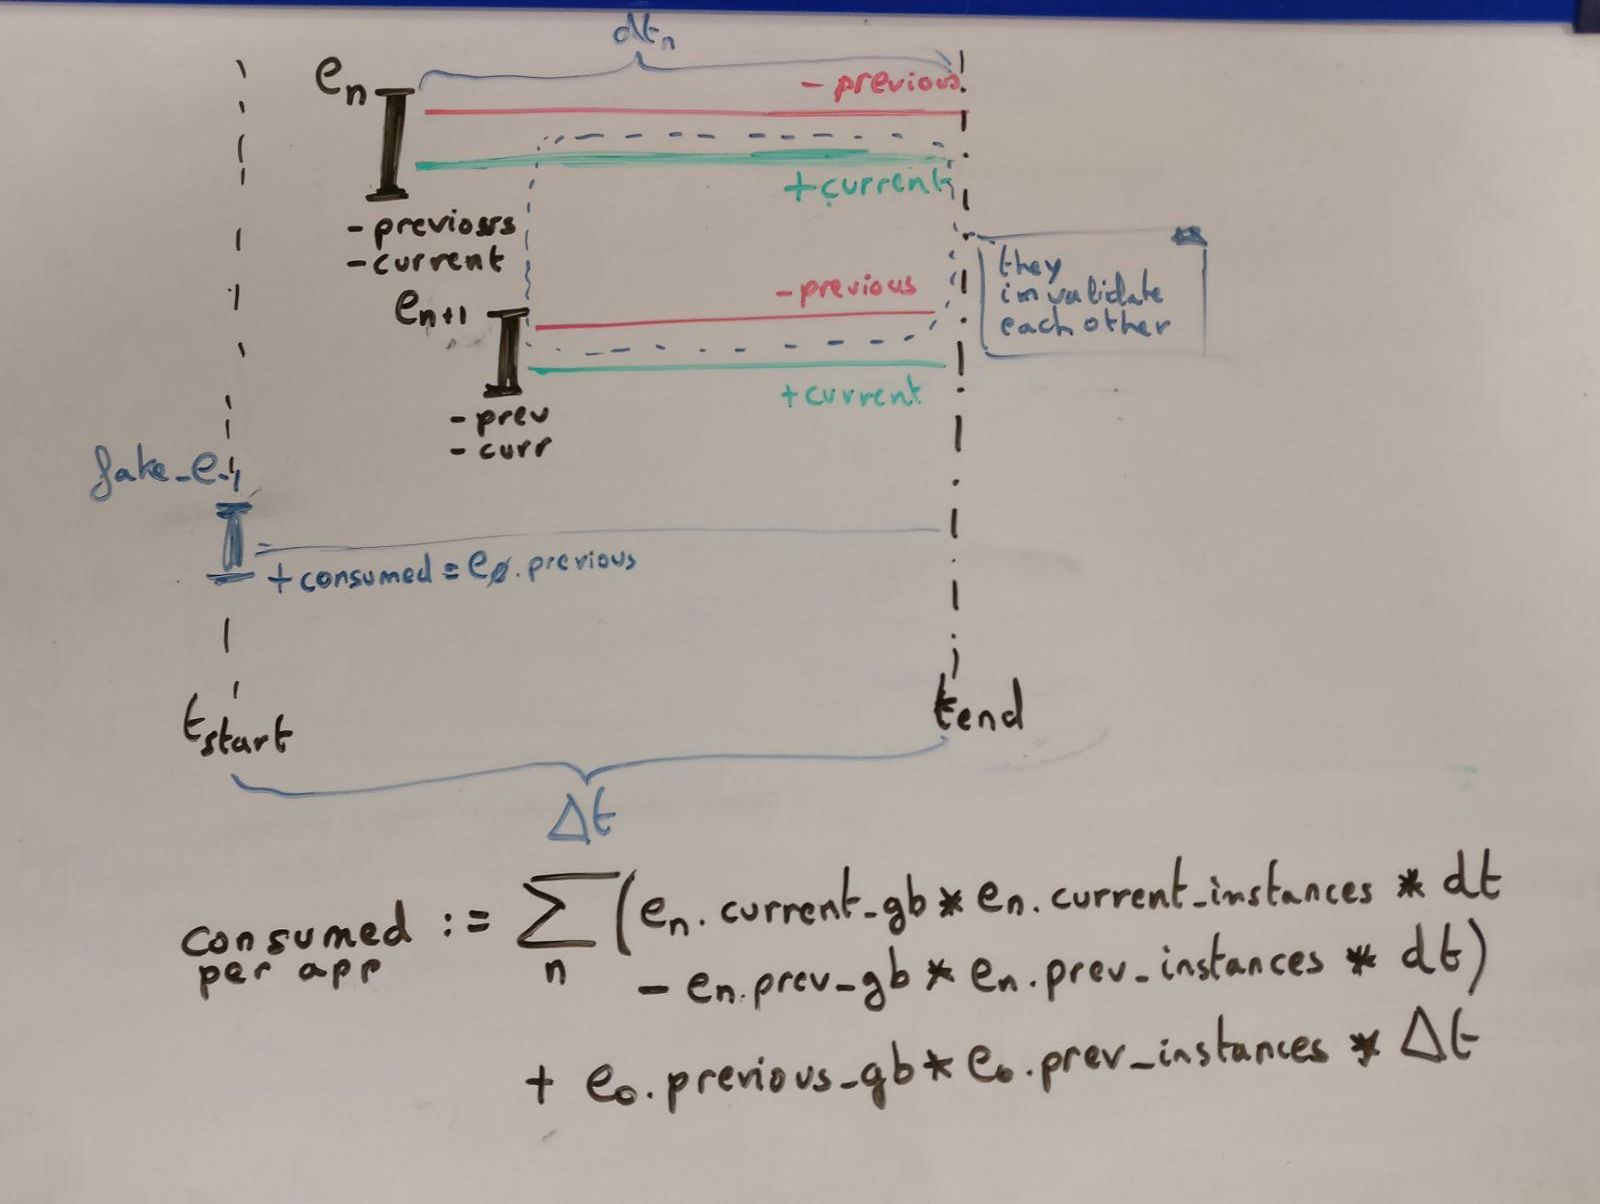 dtn
en
- previous
+current
- previous
- current
en+1
- previous
they
invalidate
each other
+current
- prev
- curr
fake_e-1
+ consumed = e0.previous
tstart
tend
Δt
consumed := Σ (en.current_gb * en.current_instances * dt
per app n - en.prev_gb * en.prev_instances * dt)
+ e0.previous_gb * e0.prev_instances * Δt